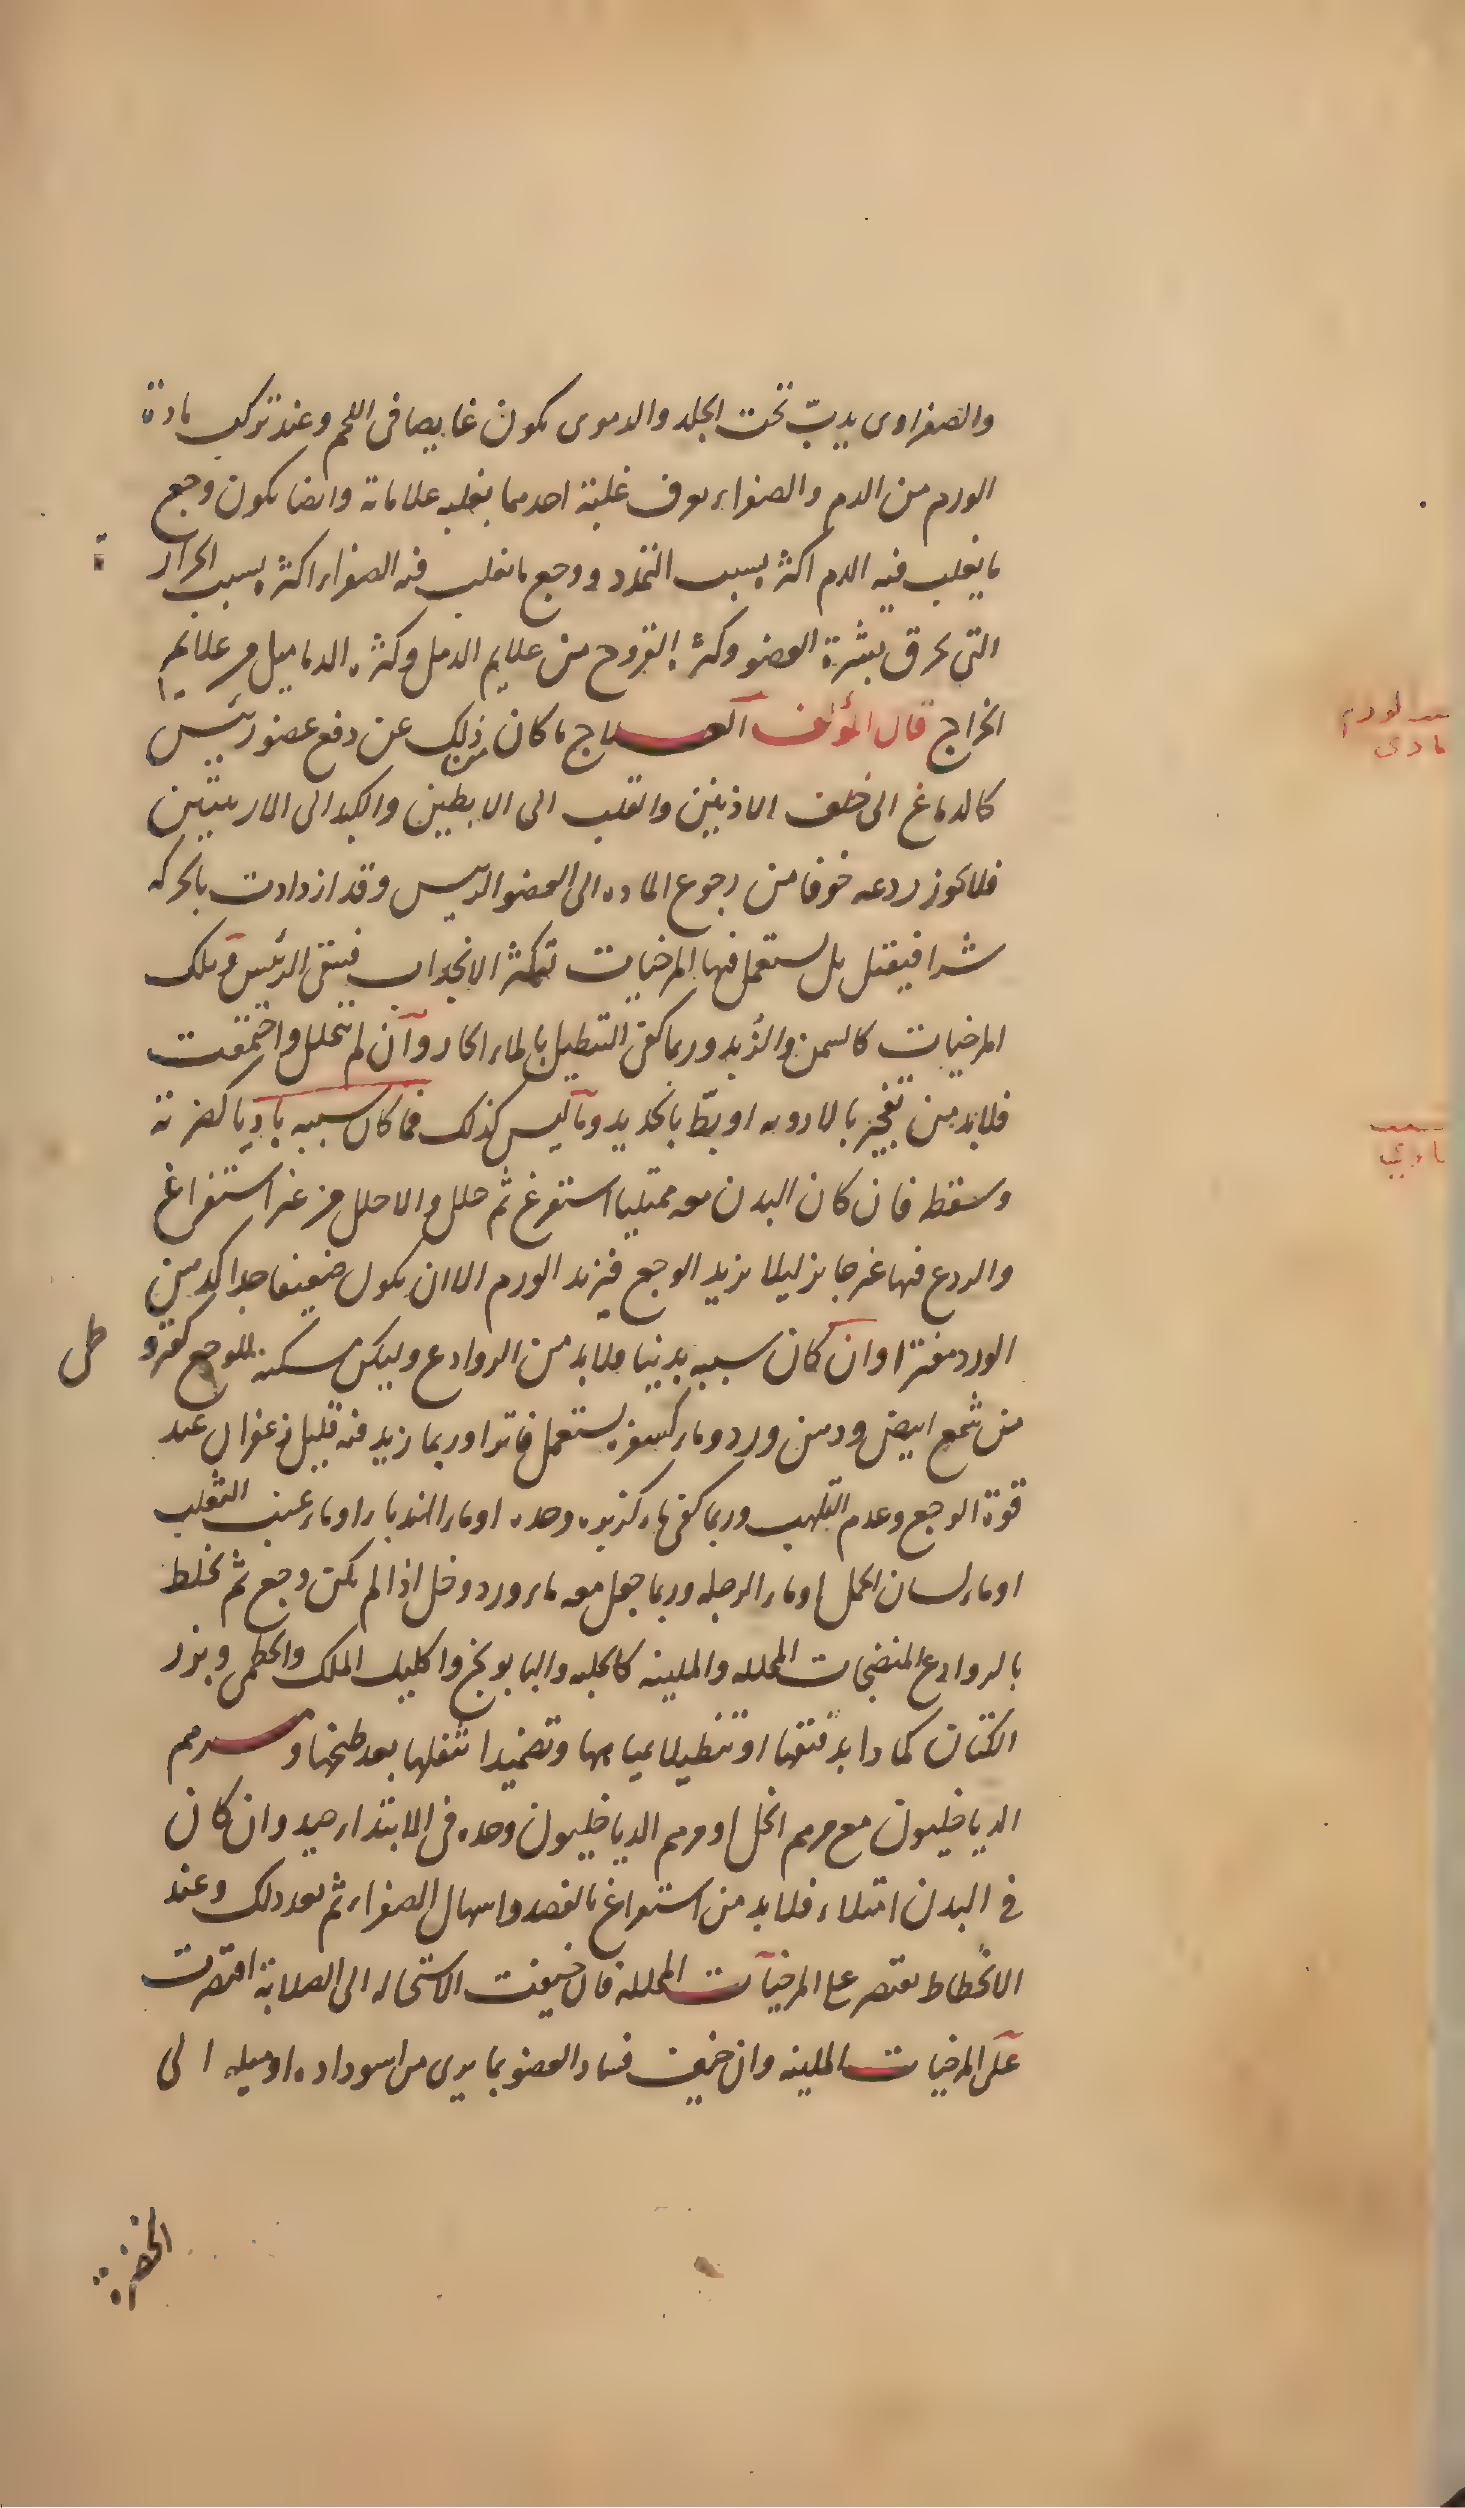 والصفراوى يدبّ تحت الجلد والدموى يكون غايصا فى اللحم وعند تركب مادة
الورم من الدم والصفراء يعرف غلبة احدهما بغلبه علاماته وايضا يكون وجع
ما يغلب فيه الدم اكثر بسبب التمدد ووجع ما يغلب فيه الصفراء اكثر بسبب الحرار
ة
التى تحرق بشرة العضو وكثرة القروح من علايم الدمل وكثره الدماميل من علايم
الخراج قال المؤلف العلاج ما كان من ذلك عن دفع عضو رئيس
كالدماغ الى خلف الاذنين والقلب الى الابطين والكبد الى الاربيتين
فلا يجوز ردعه خوفا من رجوع الماده الى العضو الرئيس وقد ازدادت بالحركه
شرا فيقتل بل يستعمل فيها المرخيات لتكثر الانجذاب فينقى الرئيس وتلك
المرخيات كالسمن والزبد وربما كفى التنطيل بالماء الحار وان لم تتحلل واجتمعت
فلابد من تفجير بالادويه او بطّ بالحديد وما ليس كذلك فما كان سببه باديا كضربة
وسقطه فان كان البدن معه ممتليا استفرغ ثم حلل والا حلل من غير استفراغ
والردع فيها غير جايز ليلا يزيد الوجع فيزيد الورم الا ان يكون ضعيفا جدا كدهن
الورد مفترا وان كان سببه بدنيا فلابد من الروادع وليكن مسكنه للوجع كقيرو
طى
من شمع ابيض ودهن ورد وماء كسفره يستعمل فاترا وربما زيد فيه قليل زعفران عند
قوة الوجع وعدم التلهب وربما كفى ماء كزبره وحده او ماء الهندباء او ماء عنب الثعلب
او ماء لسان الحمل او ماء الرجله وربما جعل معه ماء ورد وخل اذا لم يكن وجع ثم يخلط
بالروادع المنضجات المحلله والملينه كالحلبه والبابونج واكليل الملك والخطمى وبزر
الكتان كمادا بدقيقها او تنطيلا بمياهها وتضميدا بثفلها بعد طبخها ومرهم
الدياخليون مع مرهم الخل او مرهم الدياخليون وحده فى الابتداء جيد وان كان
فى البدن امتلاء فلابد من استفراغ بالفصد واسهال الصفراء ثم بعد ذلك وعند
الانحطاط يقتصر على المرخيات المحلله فان خيفت الاستحاله الى الصلابة اقتصرت
على المرخيات الملينه وان خيف فساد العضو بما يرى من اسوداده او ميله الى
الخضرة
الورم
مادى
بادى